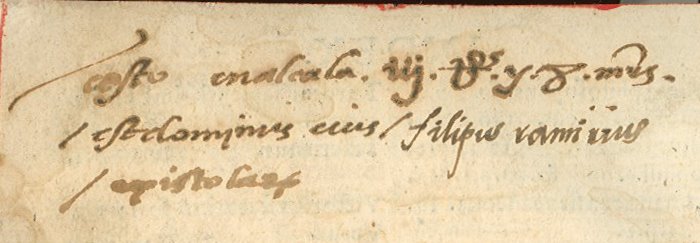 costo en alcala . iij . Rs . y . 8 . mrs .
/ est dominus eius / filipus ramirius
/ epistolas